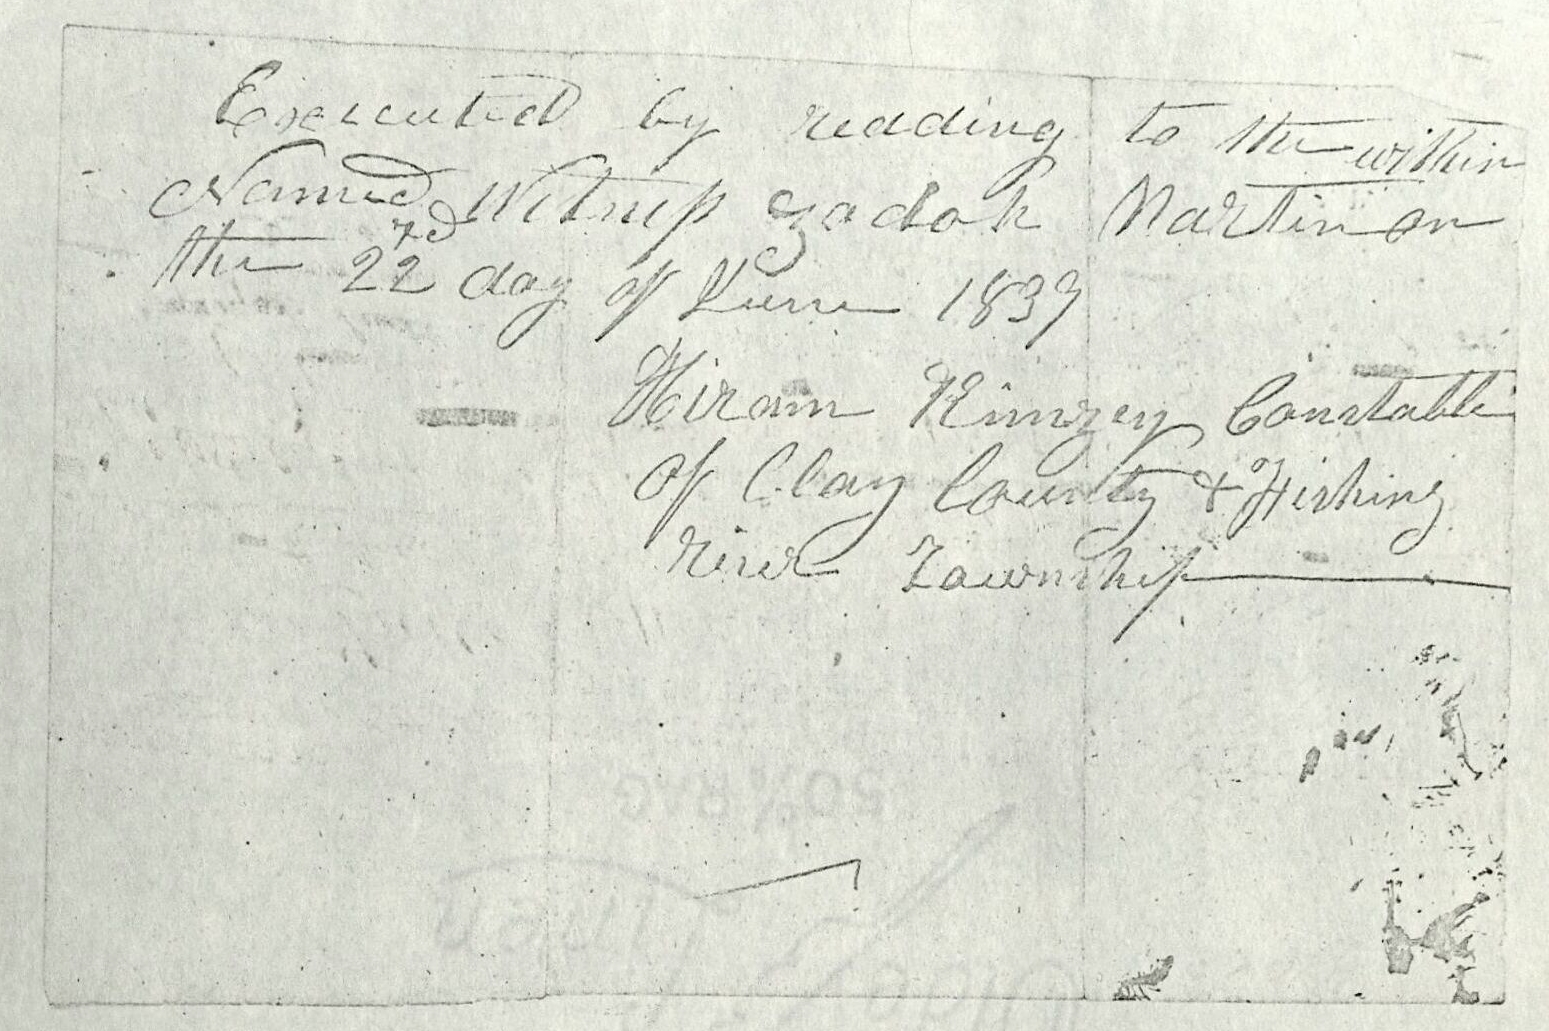 Executed by reading to the within
Named Witness Zadok Martin on
the 22nd day of June 1837
Hiram Kimzey Constable
of Clay County & Fishing
River Township
50% RAG